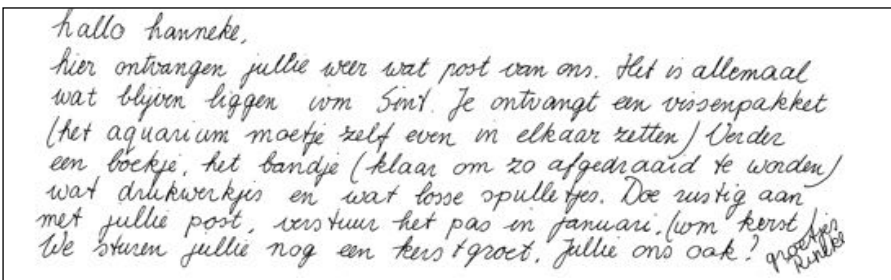 hallo hanneke,
hier ontvangen jullie weer wat post van ons. Het is allemaal
wat blijven liggen ivm Sint. Je ontvangt een vissenpakket
(het aquarium moet je zelf even in elkaar zetten) Verder
een boekje, het bandje (klaar om zo afgedraaid te worden)
wat drukwerkjes en wat losse spulletjes. Doe rustig aan
met jullie post, verstuur het pas in januari. (ivm kerst)
We sturen jullie nog een kerstgroet. Jullie ons ook?
groetjes
Rineke